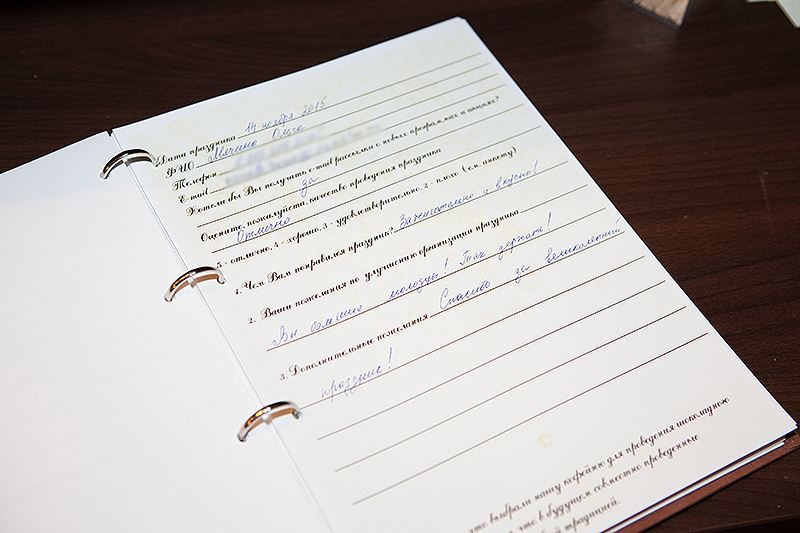 Дата праздника 14 ноября 2015
ФИО Мячина Ольга
Телефон
E-mail
Хотели бы Вы получать e-mail рассылки о новых программах и акциях?
да
Оцените, пожалуйста, качество проведения праздника
Отлично
5 - отлично, 4 - хорошо, 3 - удовлетворительно, 2 - плохо (см. анкету)
1. Чем Вам понравился праздник? Зажигательно и вкусно!
2. Ваши пожелания по улучшению организации праздника
Вы большие молодцы! Так держать!
3. Дополнительные пожелания Спасибо за великолепный
праздник!
что выбрали нашу кофейню для проведения шоколадного
что в будущем совместно проведенные
традицией.